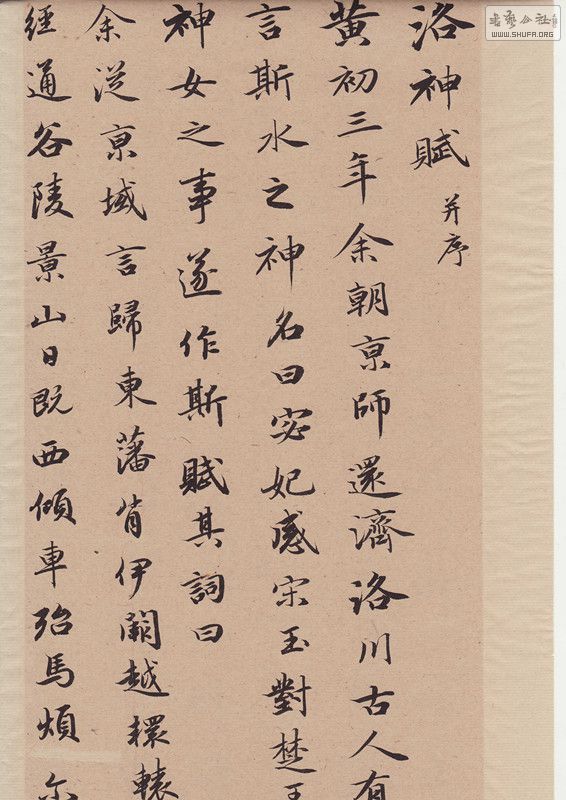 洛神賦 并序
黄初三年余朝京師還濟洛川古人有
言斯水之神名曰宓妃感宋玉對楚王
神女之事遂作斯賦其詞曰
余從京域言歸東藩背伊闕越轘轅
經通谷陵景山日既西傾車殆馬煩尔
書藝公社
WWW.SHUFA.ORG